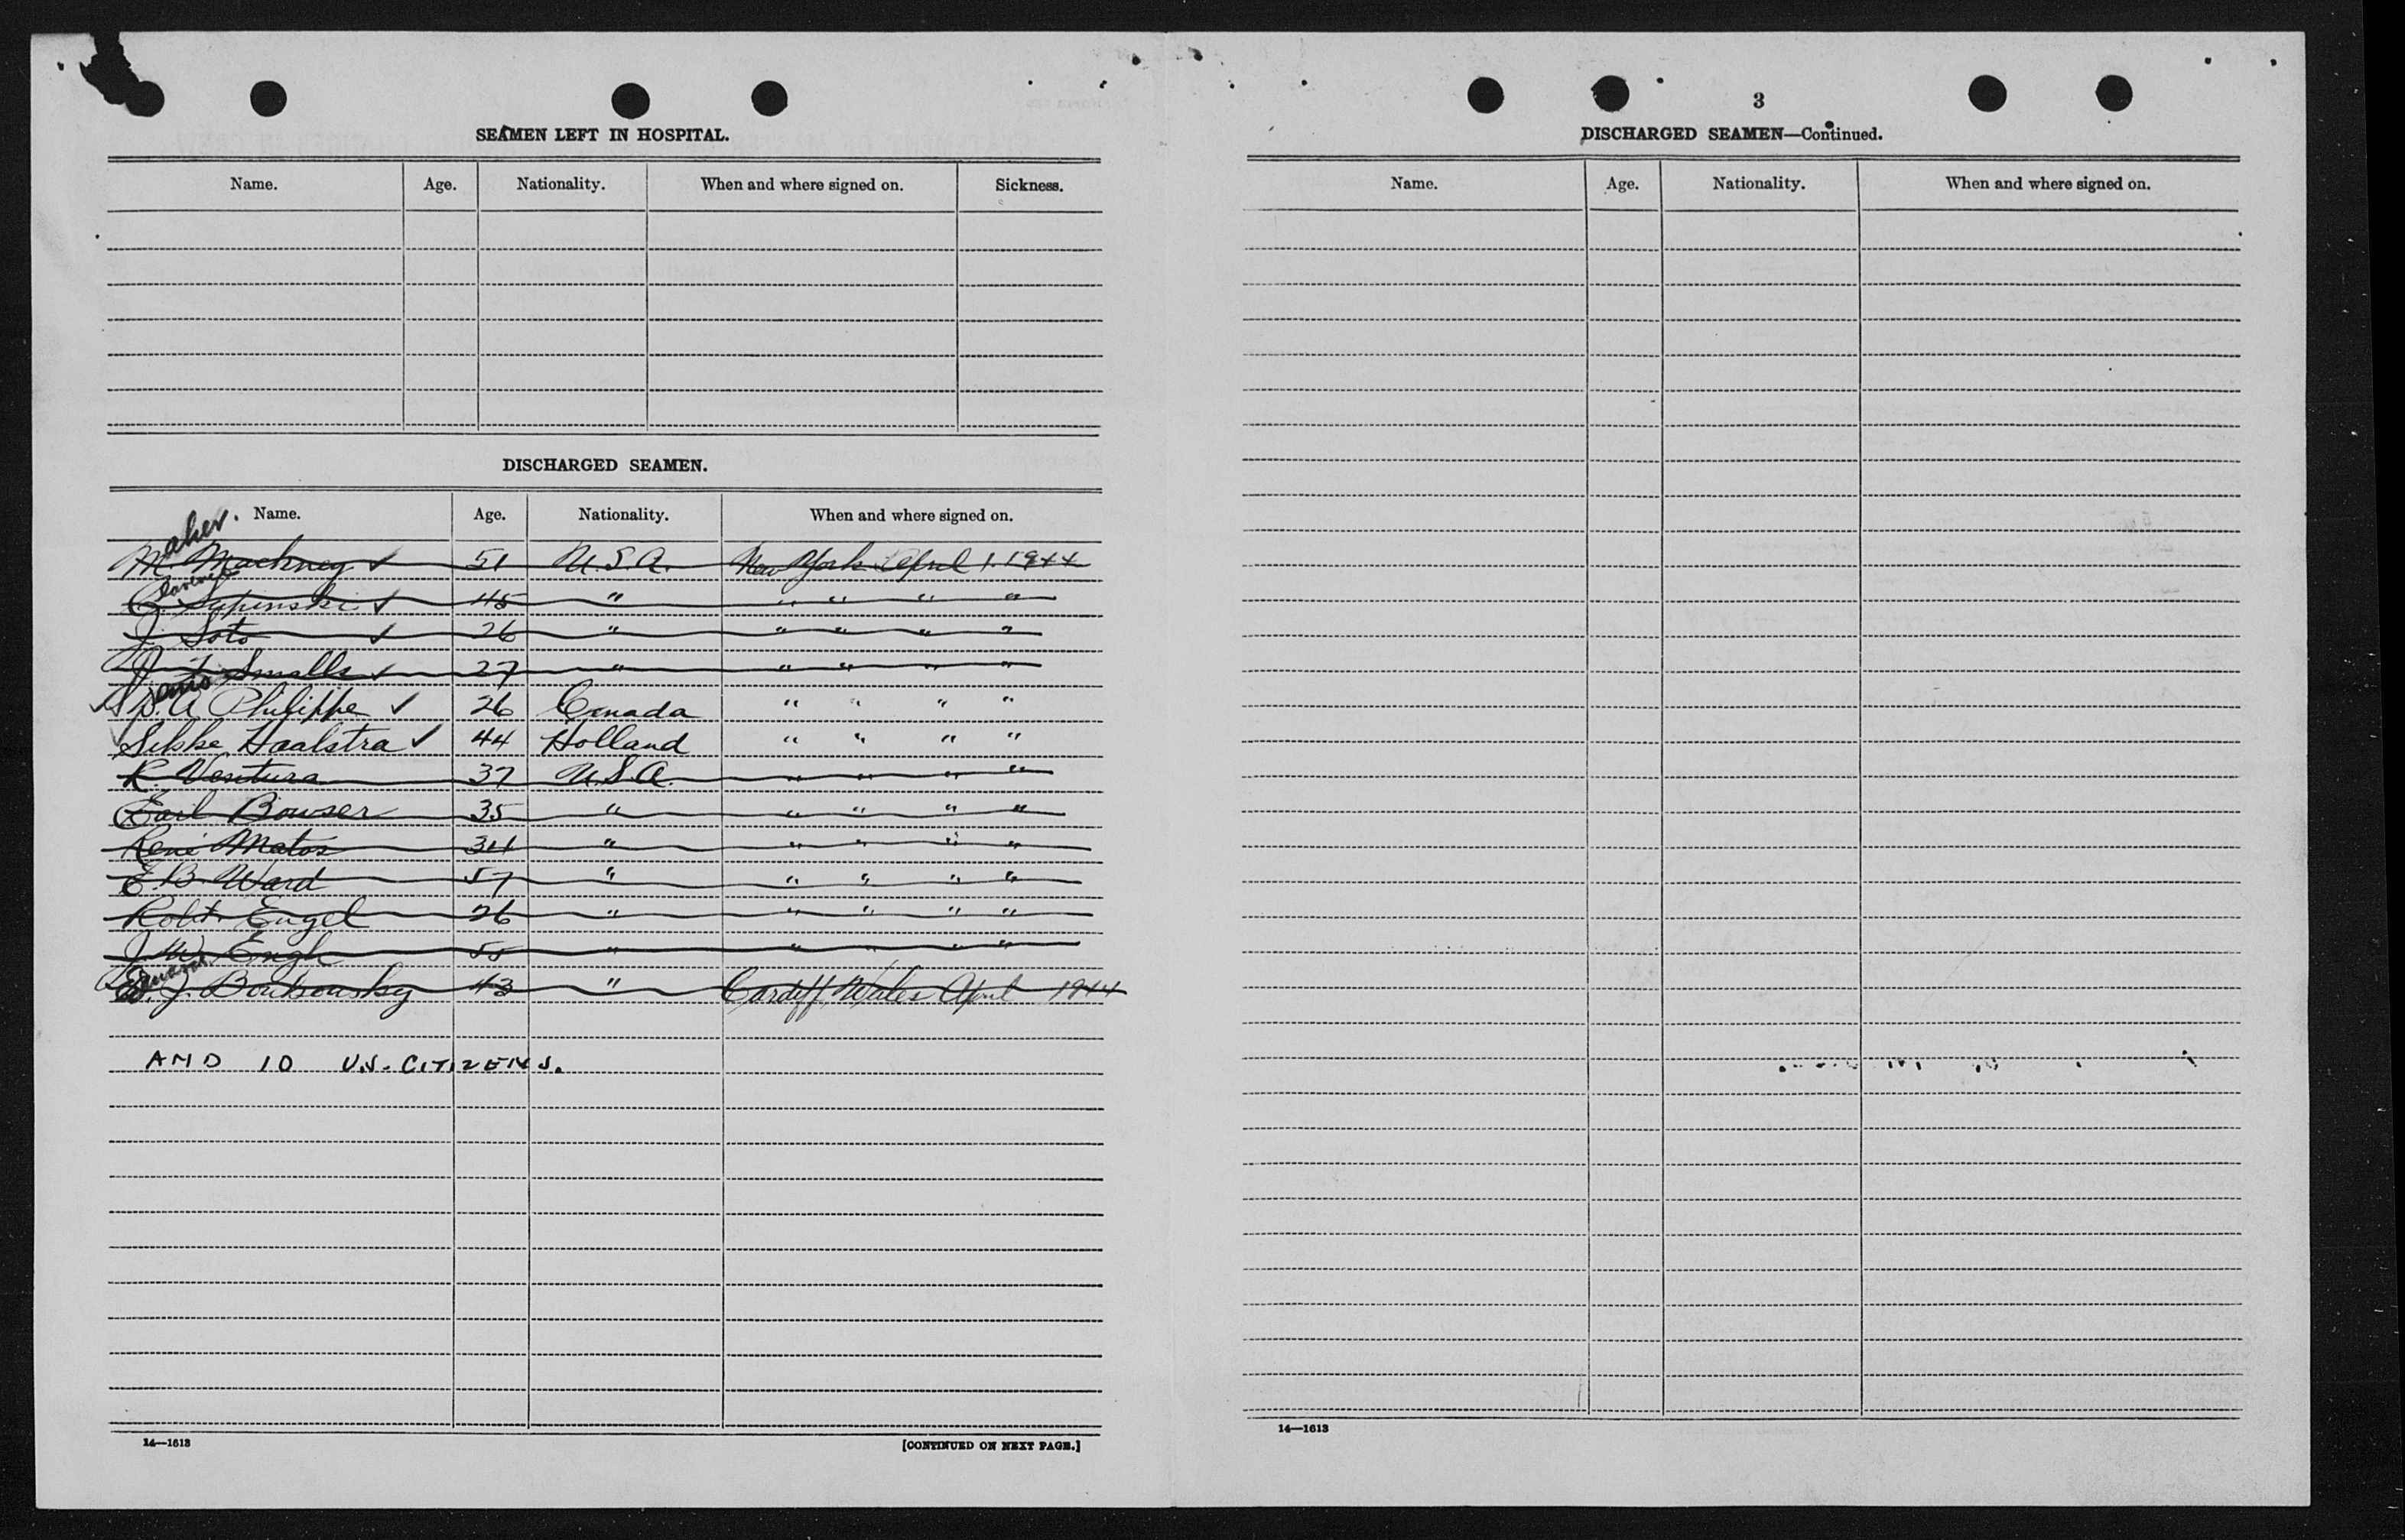 SEAMEN LEFT IN HOSPITAL.
Name. Age. Nationality. When and where signed on. Sickness.
DISCHARGED SEAMEN.
Name. Age. Nationality. When and where signed on.
aher.
M. Mackney ✓ 51 U.S.A. New York April 1. 1944
C. Sypinski ✓ 45 " " " " "
J. Soto ✓ 26 " " " " "
J. Smalls ✓ 27 " " " " "
A Philippe ✓ 26 Canada " " " "
✓ Sikke Haalstra ✓ 44 Holland " " " "
R. Ventura 37 U.S.A. " " " "
Earl Bowser 35 " " " " "
René Matos 34 " " " " "
E.B. Ward 57 " " " " "
Robt. Engel 26 " " " " "
J. W. Engh 55 " " " " "
J. 43 " Cardiff, Wales April 1944
AND 10 U.S. CITIZENS.
14—1613
[CONTINUED ON NEXT PAGE.]
3
DISCHARGED SEAMEN—Continued.
Name. Age. Nationality. When and where signed on.
14—1613